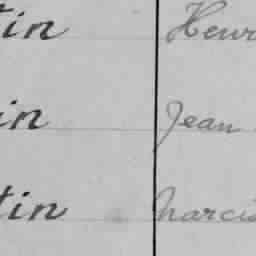 tin Henri
in Jean
tin Narcis